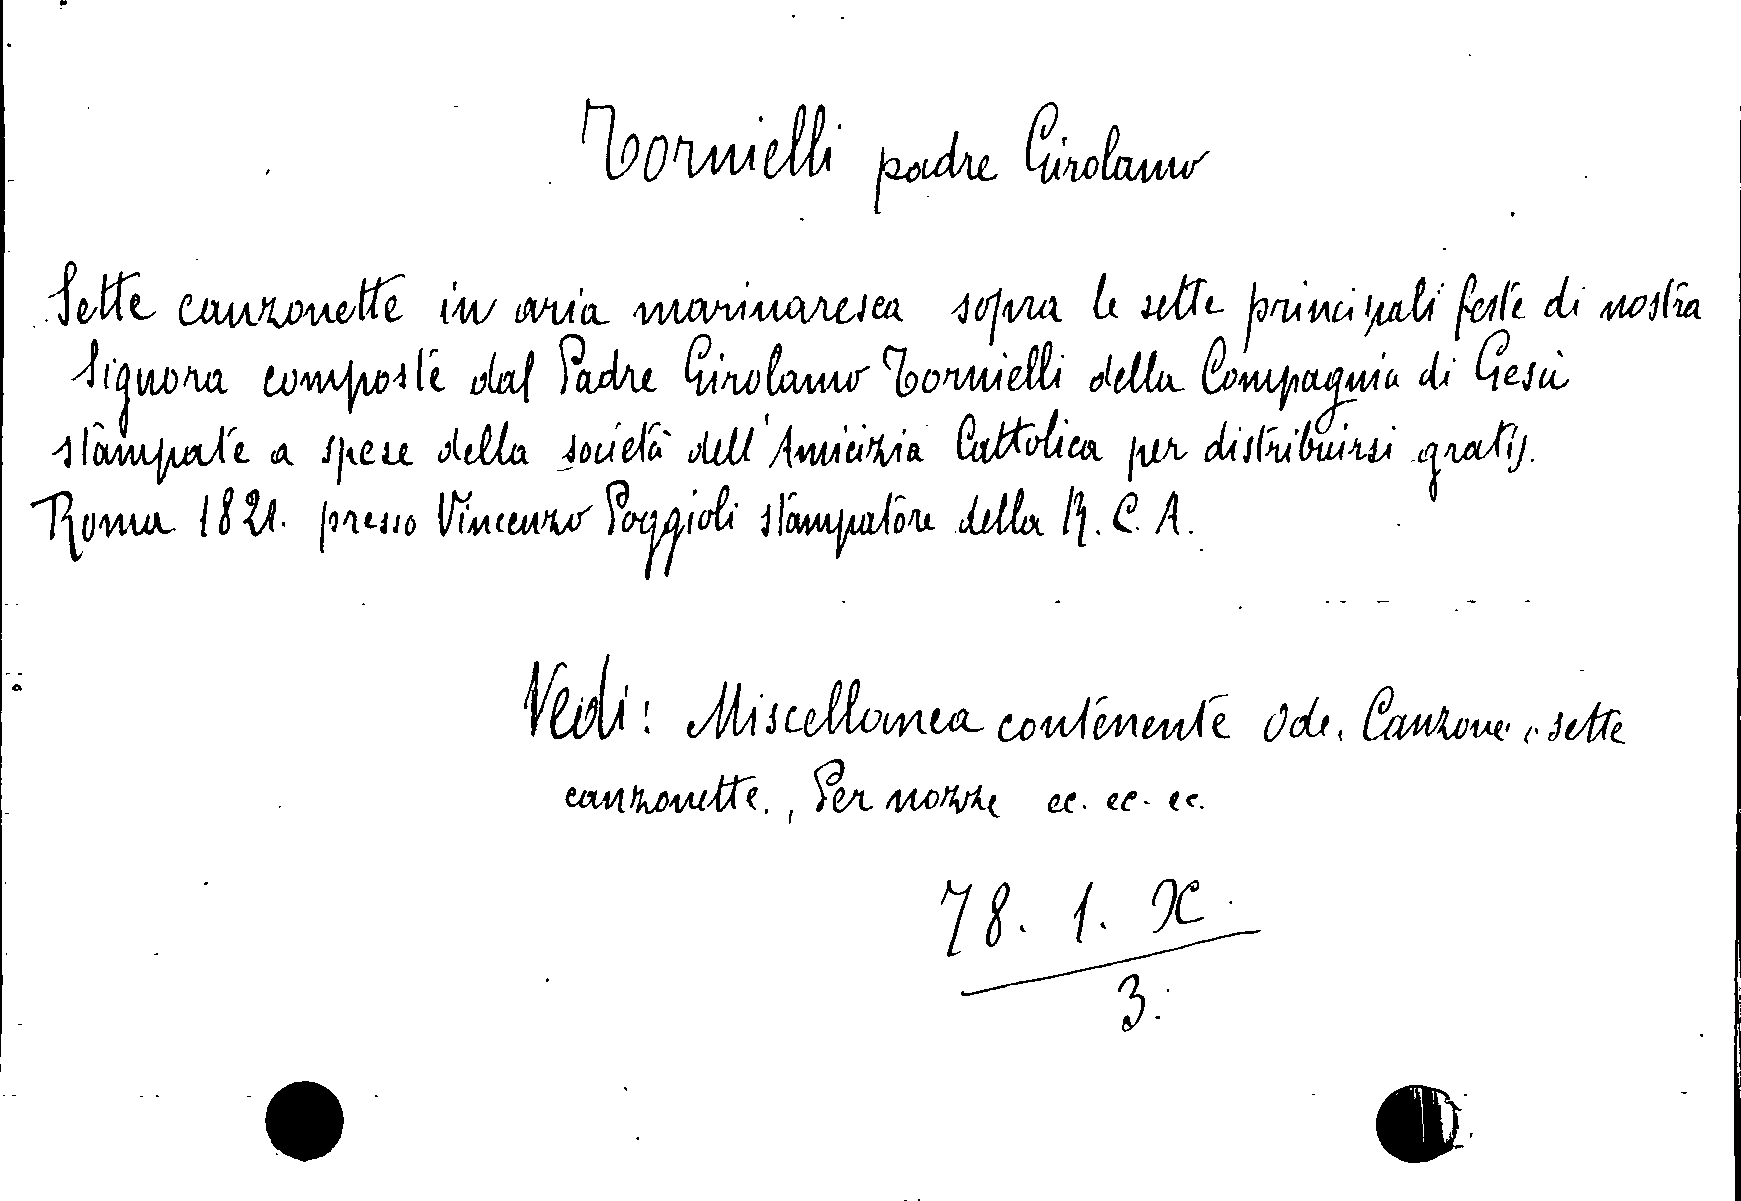 Tornielli padre Girolamo
Sette canzonette in aria marinaresca sopra le sette principali feste di nostra
Signora composte dal Padre Girolamo Tornielli della Compagnia di Gesù
stampate a spese della società dell'Amicizia Cattolica per distribuirsi gratis.
Roma 1821. presso Vincenzo Poggioli stampatore della R. C. A.
Vedi: Miscellanea contenente Ode, Canzone, sette
canzonette., Per nozze ec. ec. ec.
78. 1. X.
3.